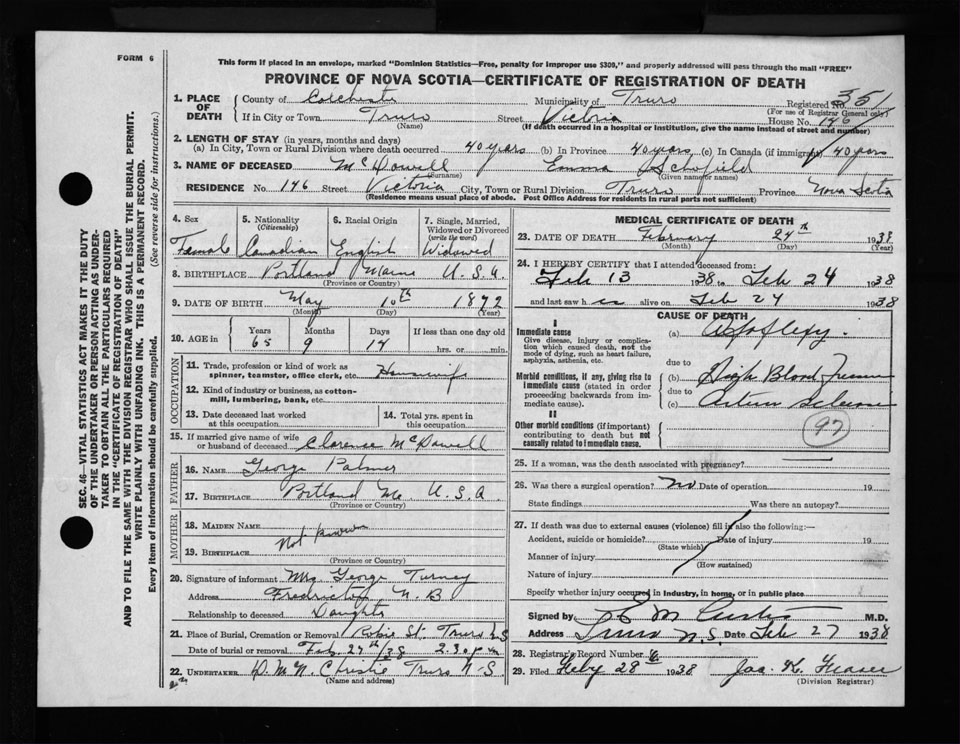 FORM 6
This form if placed in an envelope, marked "Dominion Statistics—Free, penalty for improper use $300," and properly addressed will pass through the mail "FREE"
PROVINCE OF NOVA SCOTIA—CERTIFICATE OF REGISTRATION OF DEATH
SEC. 46—VITAL STATISTICS ACT MAKES IT THE DUTY
OF THE UNDERTAKER OR PERSON ACTING AS UNDER-
TAKER TO OBTAIN ALL THE PARTICULARS REQUIRED
IN THE "CERTIFICATE OF REGISTRATION OF DEATH"
AND TO FILE THE SAME WITH THE DIVISION REGISTRAR WHO SHALL ISSUE THE BURIAL PERMIT.
WRITE PLAINLY WITH UNFADING INK. THIS IS A PERMANENT RECORD.
Every item of information should be carefully supplied. (See reverse side for instructions.)
1. PLACE OF DEATH County of Colchester Municipality of Truro Registered No 351
(For use of Registrar General only)
If in City or Town Truro Street Victoria House No. 146
(Name) (If death occurred in a hospital or institution, give the name instead of street and number)
2. LENGTH OF STAY (in years, months and days)
(a) In City, Town or Rural Division where death occurred 40 years (b) In Province 40 years (c) In Canada (if immigrant) 40 years
3. NAME OF DECEASED McDowell Emma Schofield
(Surname) (Given name or names)
RESIDENCE No. 146 Street Victoria City, Town or Rural Division Truro Province Nova Scotia
(Residence means usual place of abode. Post Office Address for residents in rural parts not sufficient)
4. Sex 5. Nationality (Citizenship) 6. Racial Origin 7. Single, Married, Widowed or Divorced (write the word)
Female Canadian English Widowed
8. BIRTHPLACE Portland Maine U.S.A.
(Province or Country)
9. DATE OF BIRTH May 10th 1872
(Month) (Day) (Year)
10. AGE in Years Months Days If less than one day old
65 9 14 hrs. or min.
OCCUPATION
11. Trade, profession or kind of work as spinner, teamster, office clerk, etc. Housewife
12. Kind of industry or business, as cotton-mill, lumbering, bank, etc.
13. Date deceased last worked at this occupation 14. Total yrs. spent in this occupation
15. If married give name of wife or husband of deceased Clarence McDowell
FATHER
16. NAME George Palmer
17. BIRTHPLACE Portland Me. U.S.A.
(Province or Country)
MOTHER
18. MAIDEN NAME
19. BIRTHPLACE Not known
(Province or Country)
20. Signature of informant Mrs George Turney
Address Fredricton N.B
Relationship to deceased Daughter
21. Place of Burial, Cremation or Removal Robie St. Truro N.S
Date of burial or removal Feb. 27th/38 2.30 p m
22. UNDERTAKER D. M. N. Christie Truro N.S.
(Name and address)
MEDICAL CERTIFICATE OF DEATH
23. DATE OF DEATH February 24th 1938
(Month) (Day) (Year)
24. I HEREBY CERTIFY that I attended deceased from:
Feb 13 1938 to Feb 24 1938
and last saw h er alive on Feb 24 1938
CAUSE OF DEATH
I
Immediate cause
Give disease, injury or complication which caused death, not the mode of dying, such as heart failure, asphyxia, asthenia, etc.
(a) Apoplexy.
due to
Morbid conditions, if any, giving rise to immediate cause (stated in order proceeding backwards from immediate cause).
(b) High Blood Pressure
due to
(c) Arterio Sclerosis
II
Other morbid conditions (if important) contributing to death but not causally related to immediate cause.
97
25. If a woman, was the death associated with pregnancy?
26. Was there a surgical operation? No Date of operation 19
State findings Was there an autopsy?
27. If death was due to external causes (violence) fill in also the following:—
Accident, suicide or homicide? Date of injury 19
(State which)
Manner of injury
(How sustained)
Nature of injury
Specify whether injury occurred in industry, in home, or in public place
Signed by M.D.
Address Truro N.S. Date Feb 27 1938
28. Registrar's Record Number
29. Filed Feby 28 1938 Jas. K. Fraser
(Division Registrar)